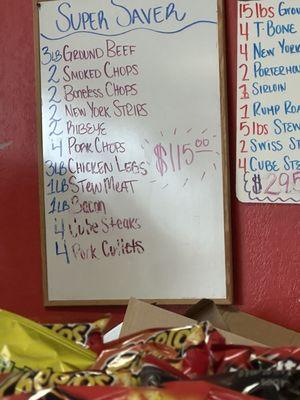 SUPER SAVER
3LB GROUND BEEF
2 SMOKED CHOPS
2 Boneless CHOPS
2 NEW YORK STRIPS
2 RIBEYE
4 PORK CHOPS
3LB CHICKEN LEGS
1LB STEW MEAT
1LB Bacon
4 Cube Steaks
4 Pork Cutlets
$115.00
15 lbs GROU
4 T-BONE
4 NEW YORK
2 PORTERHOU
SIRLOIN
1 RUMP ROA
5 lbs STEW
2 SWISS ST
4 CUBE STE
$295